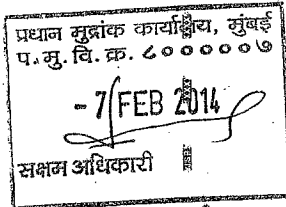 प्रधान मुद्रांक कार्यालय, मुंबई
प.मु.वि.क्र. ८००０००७
- 7 FEB 2014
सक्षम अधिकारी